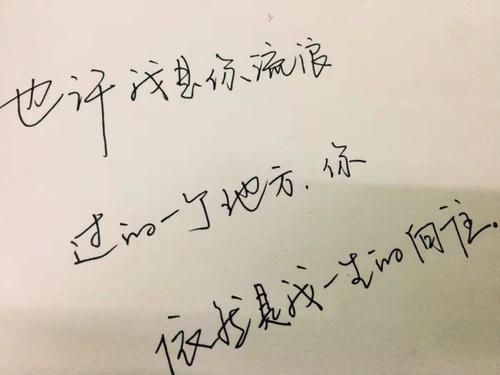 也许我是你流浪
过的一个地方.你
依然是我一生的向往.